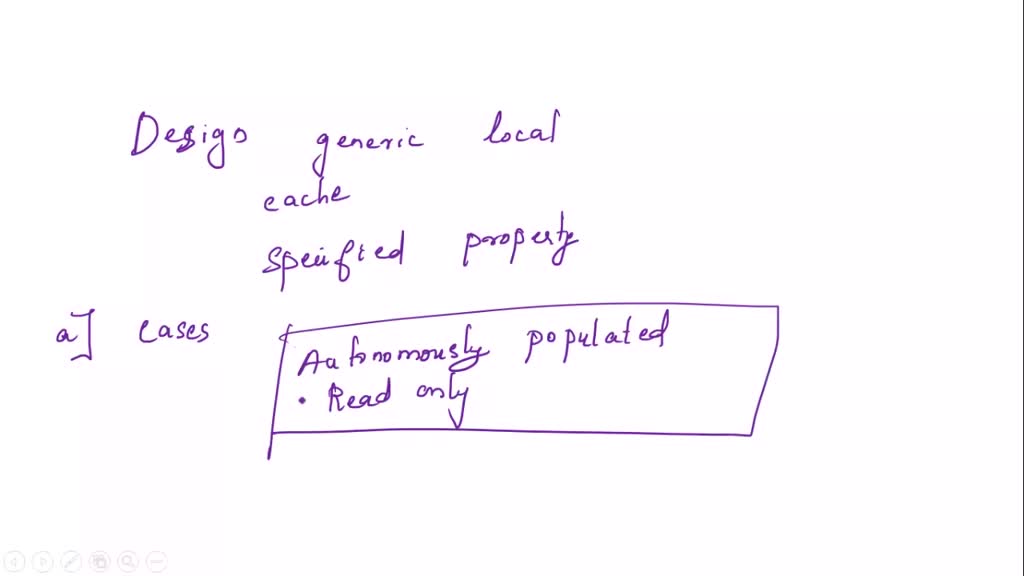 Design generic local
cache
specified property
a] cases
Autonomously populated
• Read only